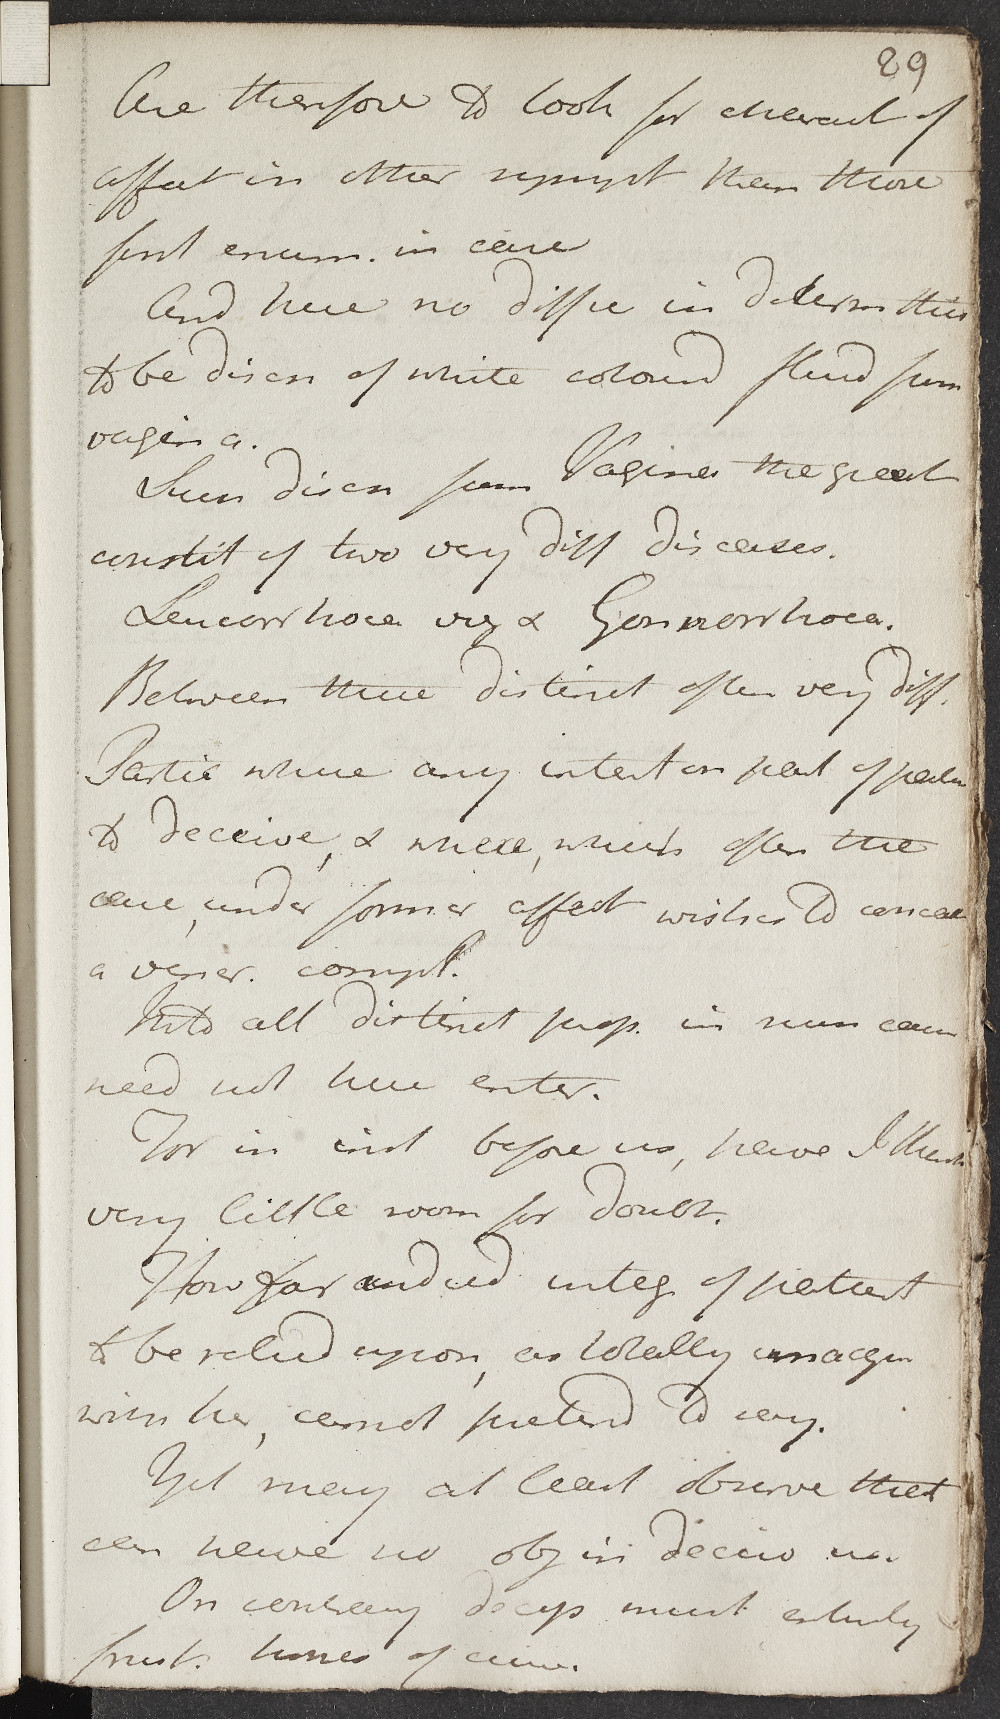 29
Are therefore to look for charact of
affect in other sympt than those
first enum. in case
And here no diffic in determ this
to be disch of white colourd fluid from
vagina.
Such disch from Vagina the great
constit of two very diff diseases.
Leucorrhoea viz & Gonnorrhoea.
Between these distinct often very diff.
Partic where any intent on part of patien
to deceive, & where, which often the
case, under former affect wishes to conceal
a vener. compl.
Into all distinct prop. in such cases
need not here enter.
For in inst before us, have I think
very little room for doubt.
How far indeed integ of patient
to be relied upon, as totally unacqu
with her, cannot pretend to say.
Yet may at least observe that
can have no obj in deceiv us.
On contrary decep must entirely
frust. hopes of cure.